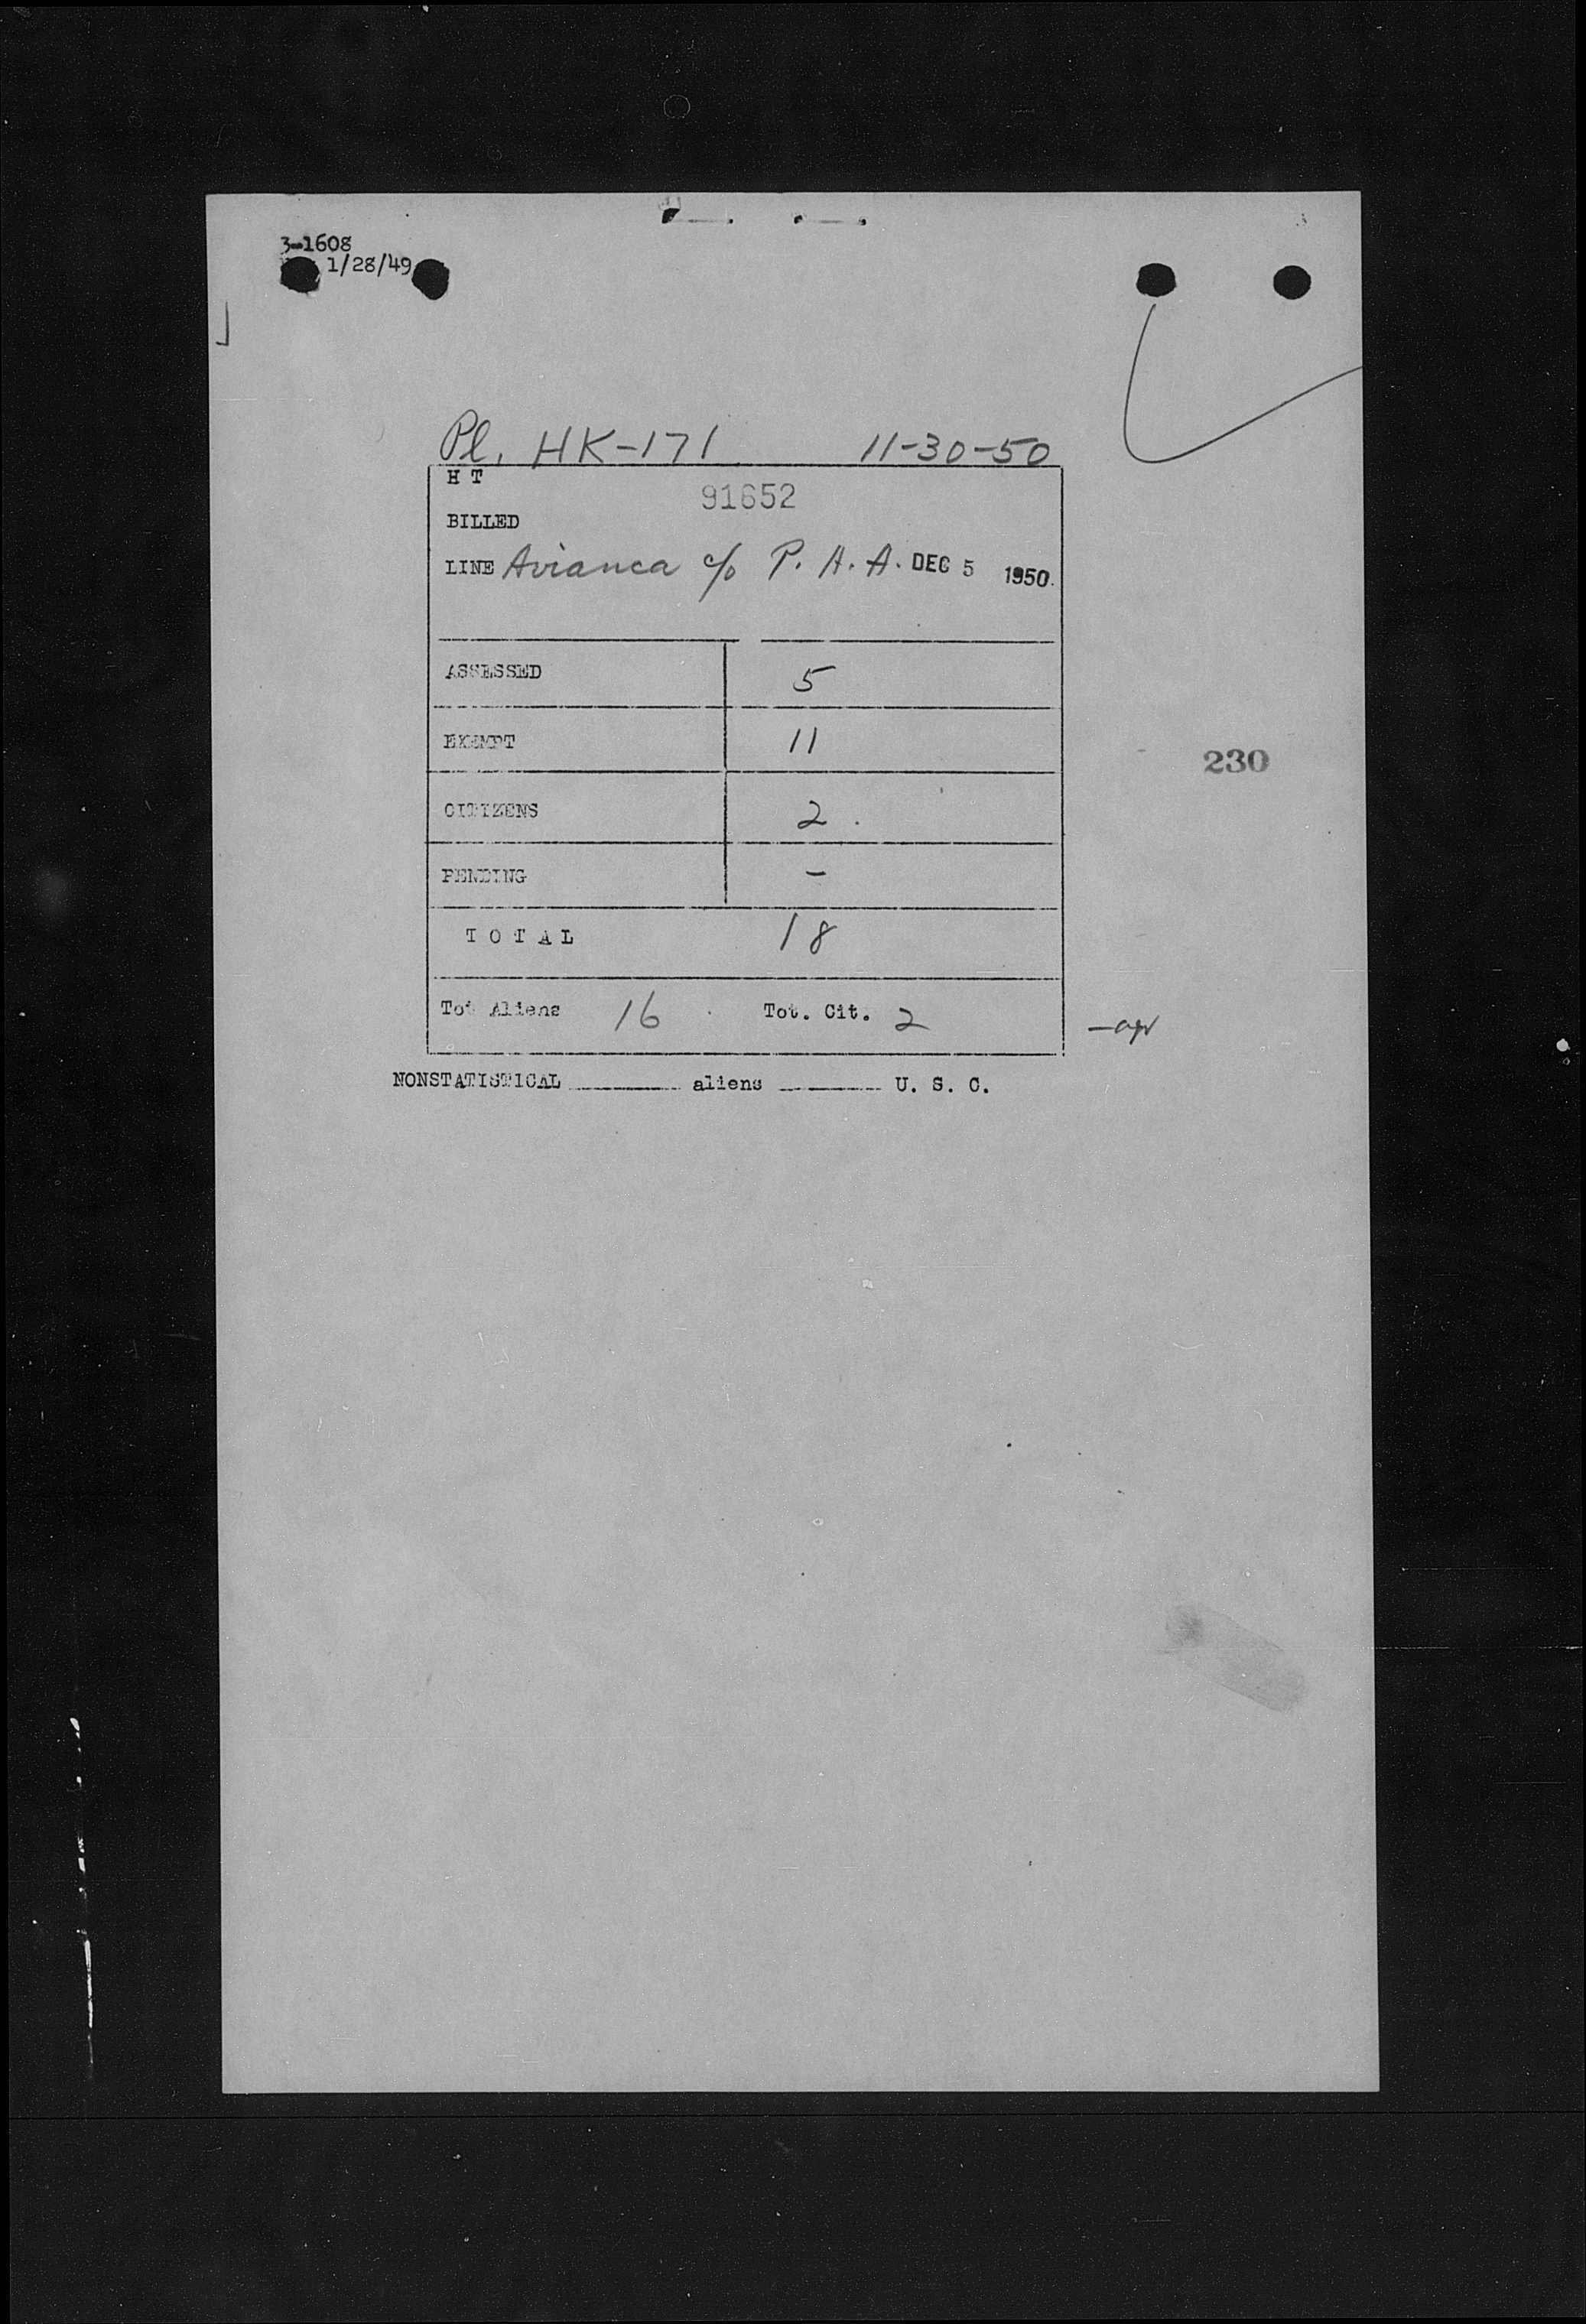 3-1608
1/28/49
Pl. HK-171 11-30-50
H T
91652
BILLED
LINE Avianca c/o P. A. A. DEC 5 1950
ASSESSED 5
EXEMPT 11
230
CITIZENS 2
PENDING -
T O T A L 18
Tot Aliens 16 Tot. Cit. 2
NONSTATISTICAL ________ aliens ________ U. S. C.